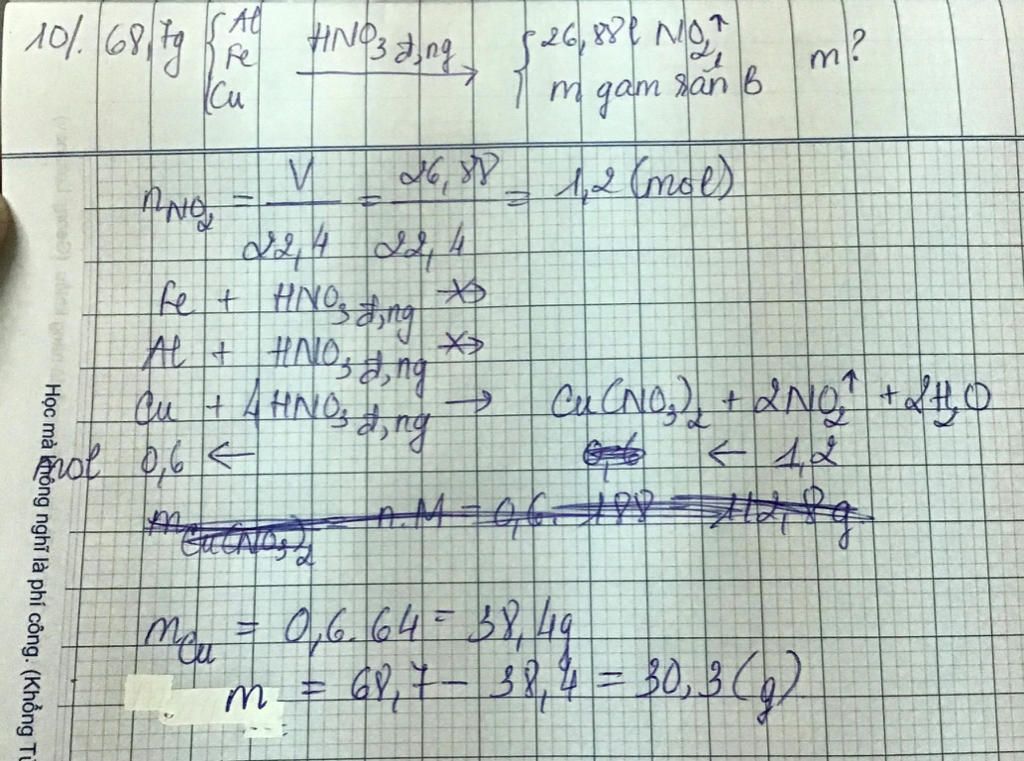 10/. 68,7g { Al Fe Cu HNO₃ đ,ng → { 26,88l NO₂↑ m gam rắn B m?
nNO₂ = V/22,4 = 26,88/22,4 = 1,2 (mol)
Fe + HNO₃ đ,ng ↛
Al + HNO₃ đ,ng ↛
Cu + 4HNO₃ đ,ng → Cu(NO₃)₂ + 2NO₂↑ + 2H₂O
mol 0,6 ← 0,6 ← 1,2
mCu(NO₃)₂ = n.M = 0,6. 188 = 112,8g
mCu = 0,6.64 = 38,4g
m = 68,7 - 38,4 = 30,3 (g)
Học mà không nghĩ là phí công. (Khổng Tử